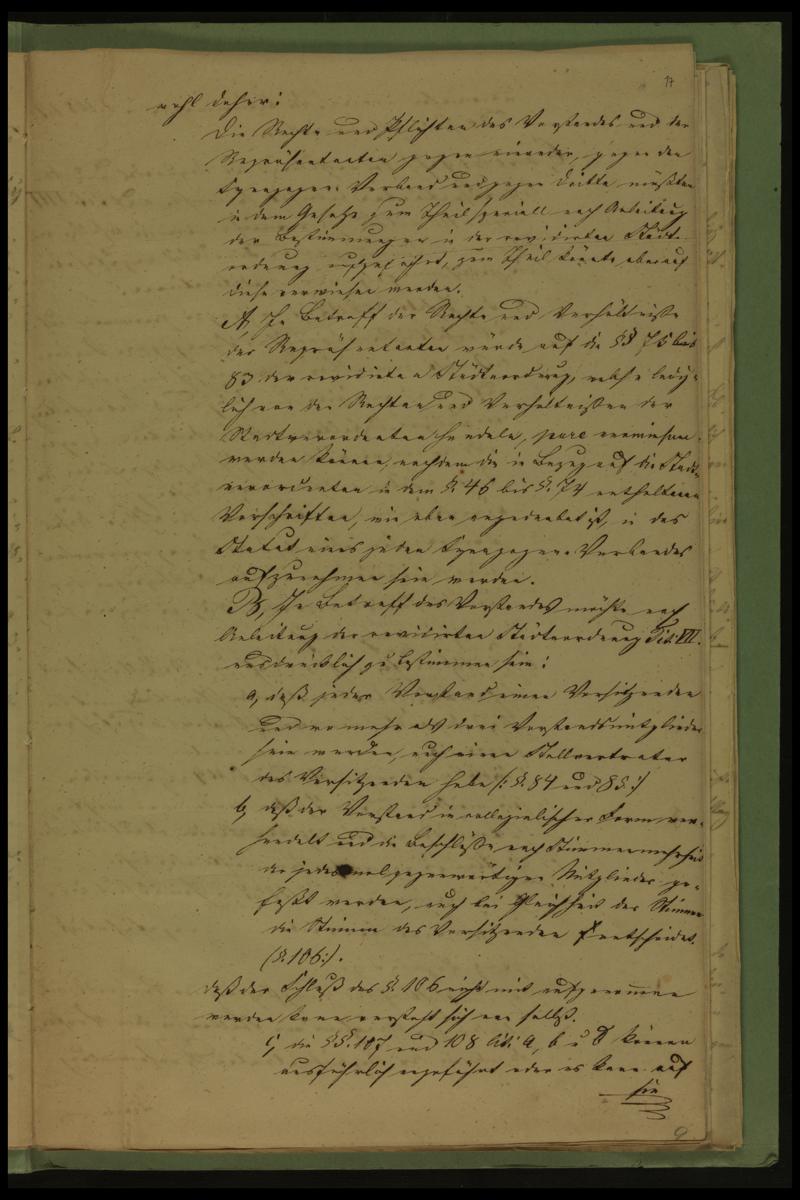 17
wohl daher:
Die Rechte und Pflichten des Vorstandes und der
Repräsentanten gegen einander, gegen den
Synagogen-Verband und gegen Dritte müßten
in dem Gesetze zum Theil speciell nach Anleitung
der Bestimmungen in der revidirten Städte-
ordnung aufgeführt, zum Theil könnte aber auf
diese verwiesen werden.
A, In Betreff der Rechte und Verhältnisse
der Repräsentanten würde auf die §§ 75 bis
83 der revidirten Städteordnung, welche ledig-
lich von den Rechten und Verhältnissen der
Stadtverordneten handeln, pure verwiesen
werden können, nachdem die in Bezug auf die Stadt-
verordneten in dem §. 46 bis §. 74 enthaltenen
Vorschriften, wie oben angedeutet ist, in das
Statut eines jeden Synagogen-Verbandes
aufzunehmen sein werden.
B, In Betreff des Vorstandes möchte nach
Anleitung der revidirten Städteordnung Tit. VII.
ausdrücklich zu bestimmen sein:
a, daß jeder Vorstand einen Vorsitzenden
und wo mehr als drei Vorstandsmitglieder
sein werden, auch einen Stellvertreter
des Vorsitzenden habe (: §. 84 und 85 :)
b, daß der Vorstand in collegialischer Form ver-
handelt und die Beschlüsse nach Stimmenmehrheit
der jedesmal gegenwärtigen Mitglieder ge-
faßt werden, auch bei Gleichheit der Stimmen
die Stimme des Vorsitzenden entscheidet
(§. 106:).
daß der Schluß des §. 106 nicht mit aufgenommen
werden kann versteht sich von selbst.
c, die §§. 107 und 108 lit: a, b u d können
ausführlich angeführt oder es kann auf
sie
9